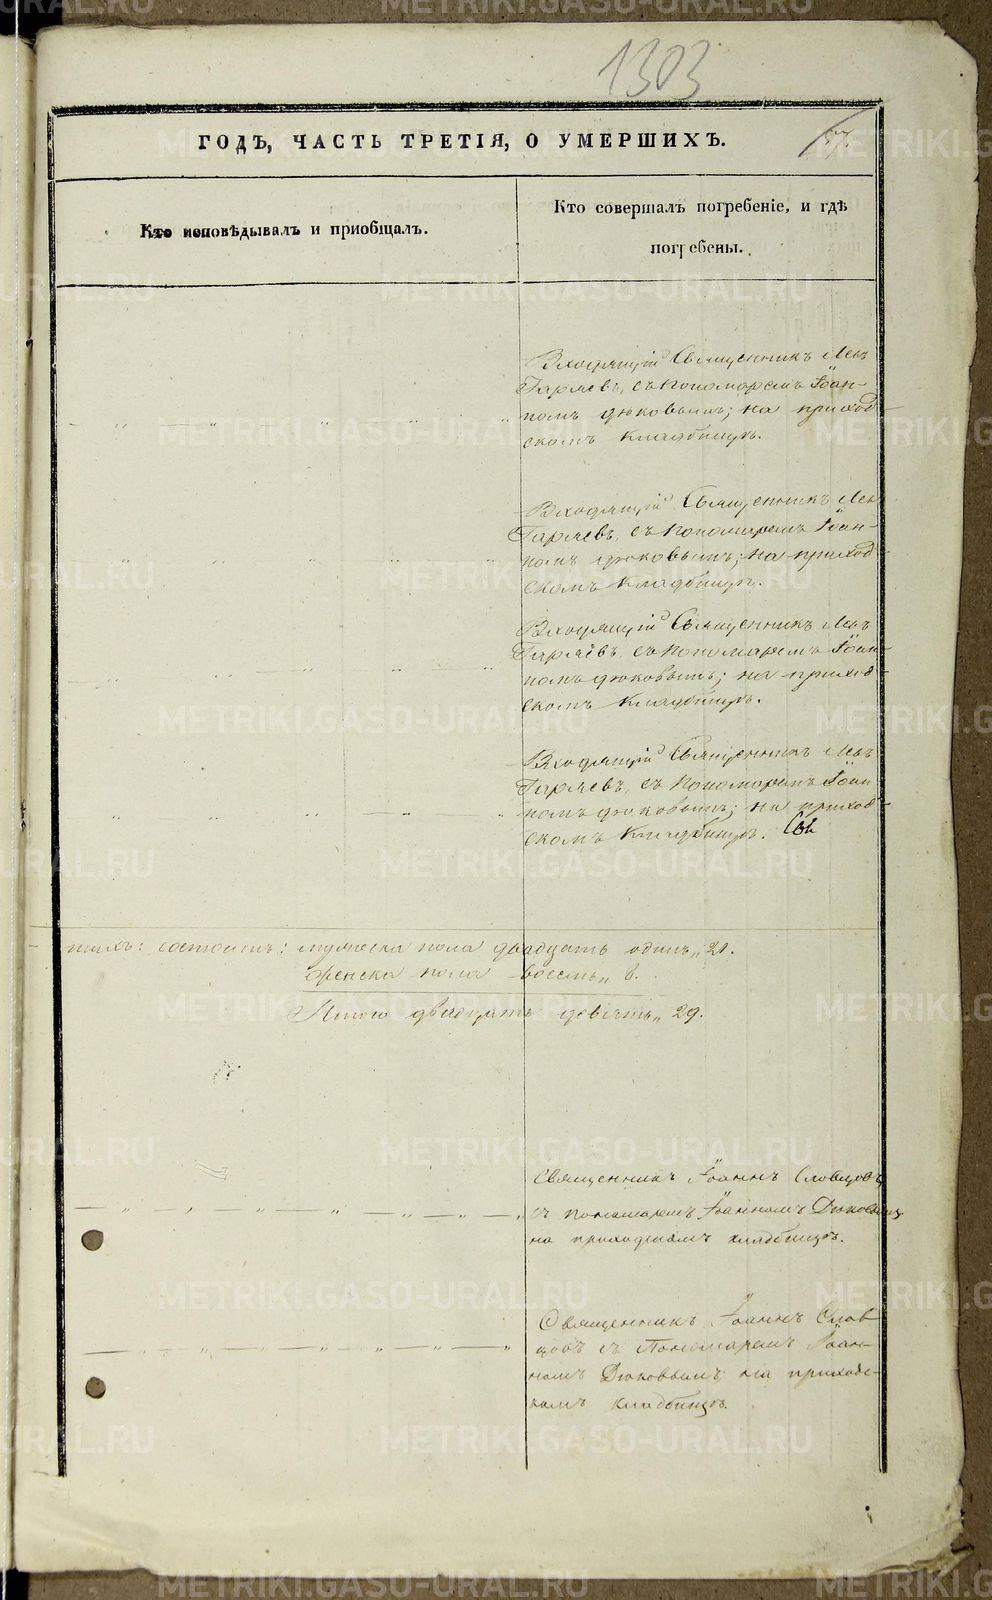 1303
ГОДЪ, ЧАСТЬ ТРЕТІЯ, О УМЕРШИХЪ.
Кто исповѣдывалъ и приобщалъ.
Кто совершалъ погребеніе, и гдѣ
погребены.
Входящій Священникъ Левъ
Гаряевъ, съ Пономаремъ Іоан-
номъ Дюковымъ; на приход-
скомъ Кладбищѣ.
Входящій Священникъ Левъ
Гаряевъ, съ Пономаремъ Іоан-
номъ Дюковымъ; на приход-
скомъ Кладбищѣ.
Входящій Священникъ Левъ
Гаряевъ, съ Пономаремъ Іоан-
номъ Дюковымъ; на приход-
скомъ Кладбищѣ.
Входящій Священникъ Левъ
Гаряевъ, съ Пономаремъ Іоан-
номъ Дюковымъ; на приход-
скомъ Кладбищѣ.
состоитъ: мужеска пола двадцать одинъ „21.
женска пола восемь „ 8.
Итого двадцать девять „ 29.
Священникъ Іоаннъ Словцовъ
съ Пономаремъ Іоанномъ Дюковымъ
на приходскомъ кладбищѣ.
Священникъ Іоаннъ Слов
цовъ съ Пономаремъ Іоан-
номъ Дюковымъ на приход-
скомъ кладбищѣ.
METRIKI.GASO-URAL.RU